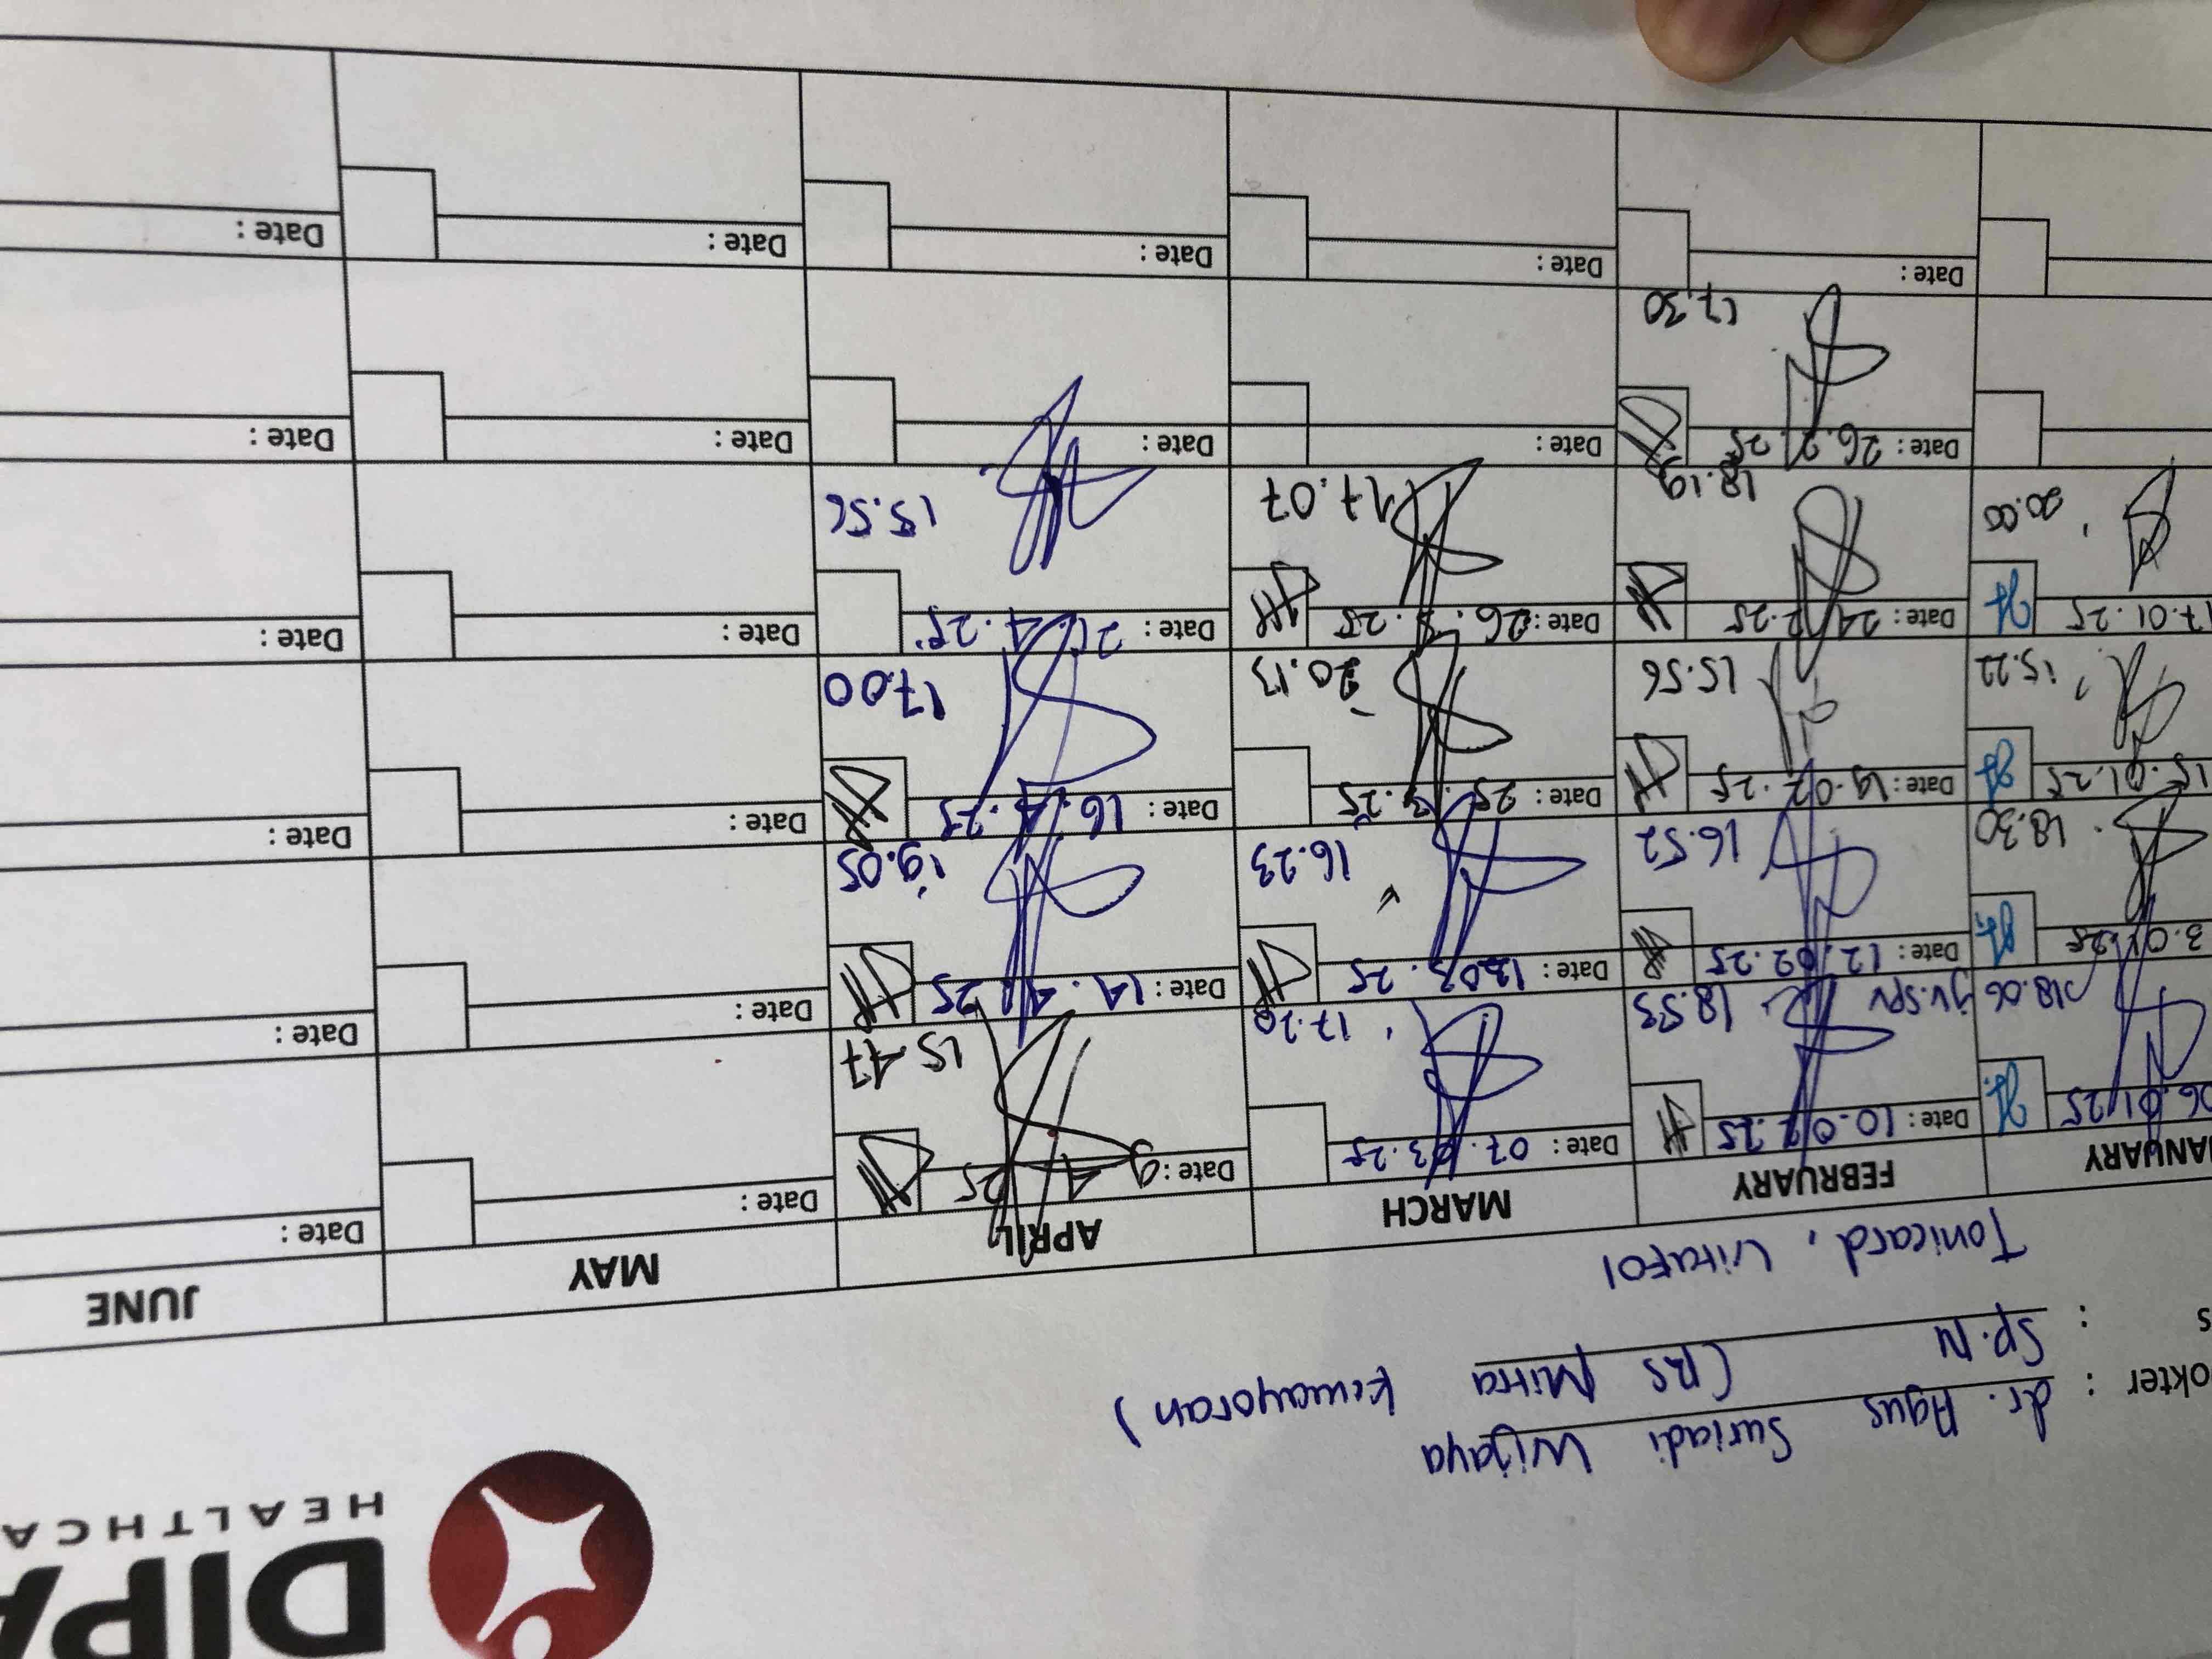 DIPA
HEALTHCA
okter : dr. Agus Suriadi Wijaya
Sp.N (RS Mitra Kemayoran)
s : Tonicard, Vitafol
ANUARY FEBRUARY MARCH APRIL MAY JUNE
06.01.25 Date: 10.02.25 Date: 07.03.25 Date: 9 4 25 Date: Date:
18.06 18.53 17.20 15.47
3.01.25 Date: 12.02.25 Date: 1203.25 Date: 14.4.25 Date: Date:
18.30 16.52 16.23 19.05
15.01.25 Date: 19.02.25 Date: 25.3.25 Date: 16.4.25 Date: Date:
15.22 15.56 20.13 17.00
17.01.25 Date: 24.2.25 Date: 26.3.25 Date: 4.25 Date: Date:
20.00 18.19 17.07 15.56
Date: 26.2.25 Date: Date: Date: Date:
17.30
Date: Date: Date: Date: Date: